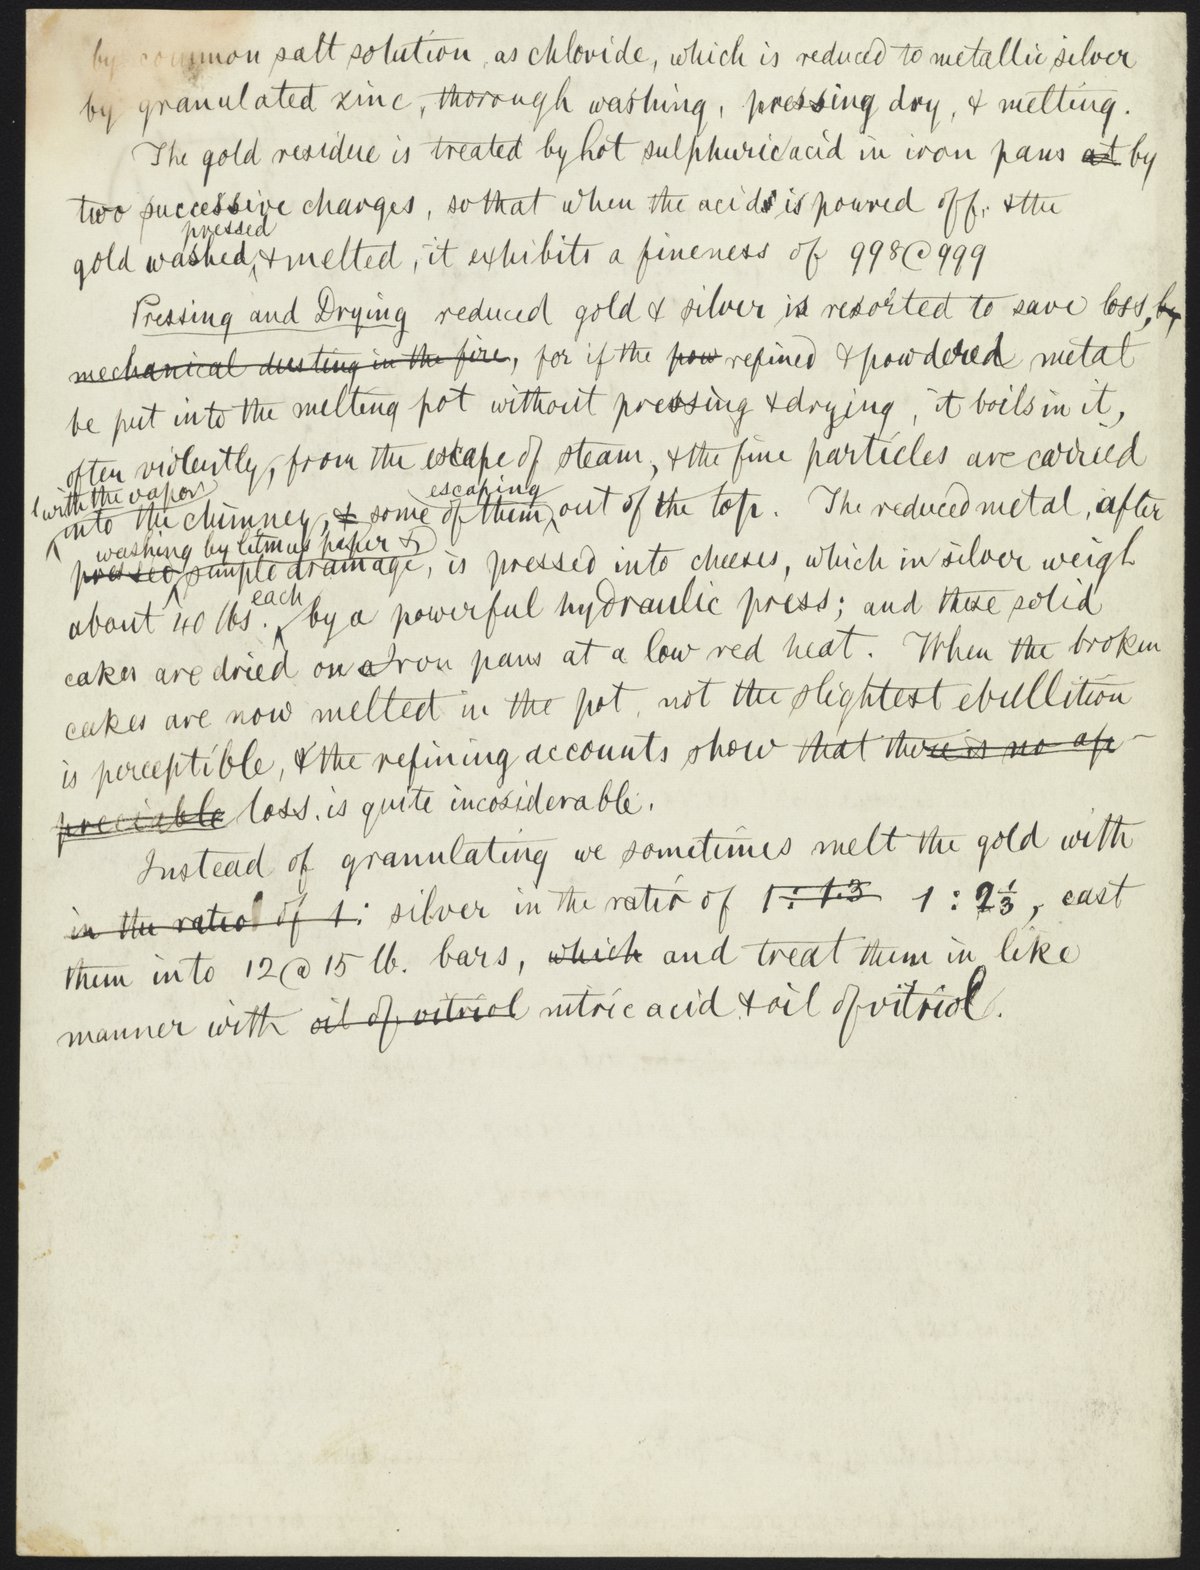 by common salt solution, as chloride, which is reduced to metallic silver
by granulated zinc, thorough washing, pressing dry, & melting.
The gold residue is treated by hot sulphuric acid in iron pans at by
two successive charges, so that when the acids is poured off, & the
pressed
gold washed, & melted, it exhibits a fineness of 998@999
Pressing and Drying reduced gold & silver is resorted to save loss, by
mechanical dusting in the fire, for if the pow refined & powdered metal
be put into the melting pot without pressing & drying, it boils in it,
often violently, from the escape of steam, & the fine particles are carried
with the vapor escaping
into the chimney, & some of them out of the top. The reduced metal, after
washing by litmus paper &
pressed simple drainage, is pressed into cheeses, which in silver weigh
each
about 40 lbs. by a powerful hydraulic press; and these solid
cakes are dried on Iron pans at a low red heat. When the broken
cakes are now melted in the pot, not the slightest ebullition
is perceptible, & the refining accounts show that there is no ap-
preciable loss. is quite incosiderable.
Instead of granulating we sometimes melt the gold with
in the ratio of 1: silver in the ratio of 1:1.3 1:2⅓, cast
them into 12@15 lb. bars, which and treat them in like
manner with oil of vitriol nitric acid & oil of vitriol.